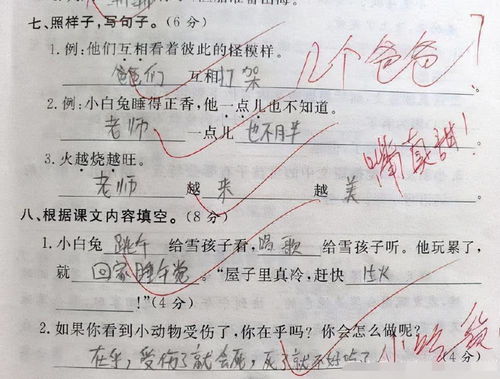 七、照样子，写句子。(6分)
1.例：他们互相看着彼此的怪模样。
爸爸们 互相打架。 几个爸爸？
2.例：小白兔睡得正香，他一点儿也不知道。
老师 一点儿 也不月半。
嘴真甜！
3.火越烧越旺。
老师 越 来 越 美。
八、根据课文内容填空。(8分)
1.小白兔 跳午 给雪孩子看，唱歌 给雪孩子听。他玩累了，
就 回家睡午觉。“屋子里真冷，赶快
！”(4分)
2.如果你看到小动物受伤了，你在乎吗？你会怎么做呢？
在乎，受伤了就会死，死了就不好吃了 小吃货 (4分)